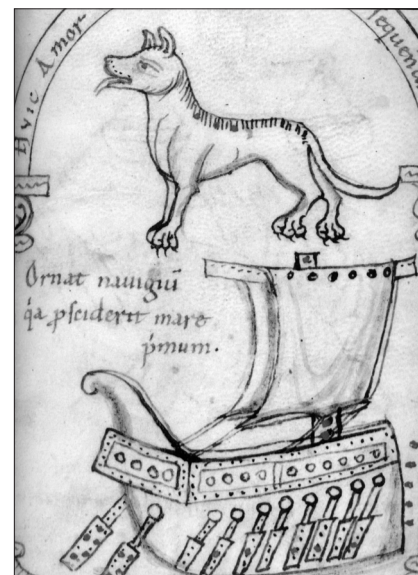 Huic Amor
sequent
Ornat nauigiū
q̇a ꝓsciderit mare
ṗmum.